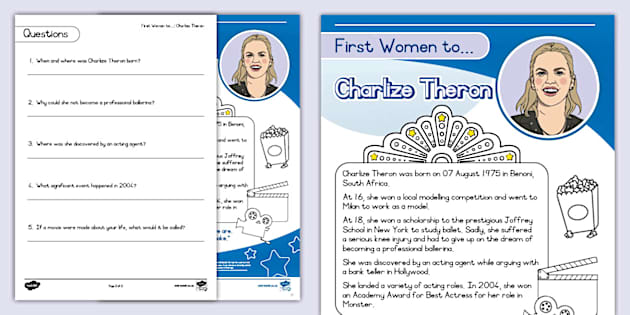 First Women to... Charlize Theron
Questions
1. When and where was Charlize Theron born?
2. Why could she not become a professional ballerina?
3. Where was she discovered by an acting agent?
4. What significant event happened in 2004?
5. If a movie were made about your life, what would it be called?
Page 2 of 2
in Benoni,
and went to
Joffrey
she suffered
e dream of
arguing with
she won
r role in
First Women to...
Charlize Theron
Charlize Theron was born on 07 August 1975 in Benoni,
South Africa.
At 16, she won a local modelling competition and went to
Milan to work as a model.
At 18, she won a scholarship to the prestigious Joffrey
School in New York to study ballet. Sadly, she suffered
a serious knee injury and had to give up on the dream of
becoming a professional ballerina.
She was discovered by an acting agent while arguing with
a bank teller in Hollywood.
She landed a variety of acting roles. In 2004, she won
an Academy Award for Best Actress for her role in
Monster.